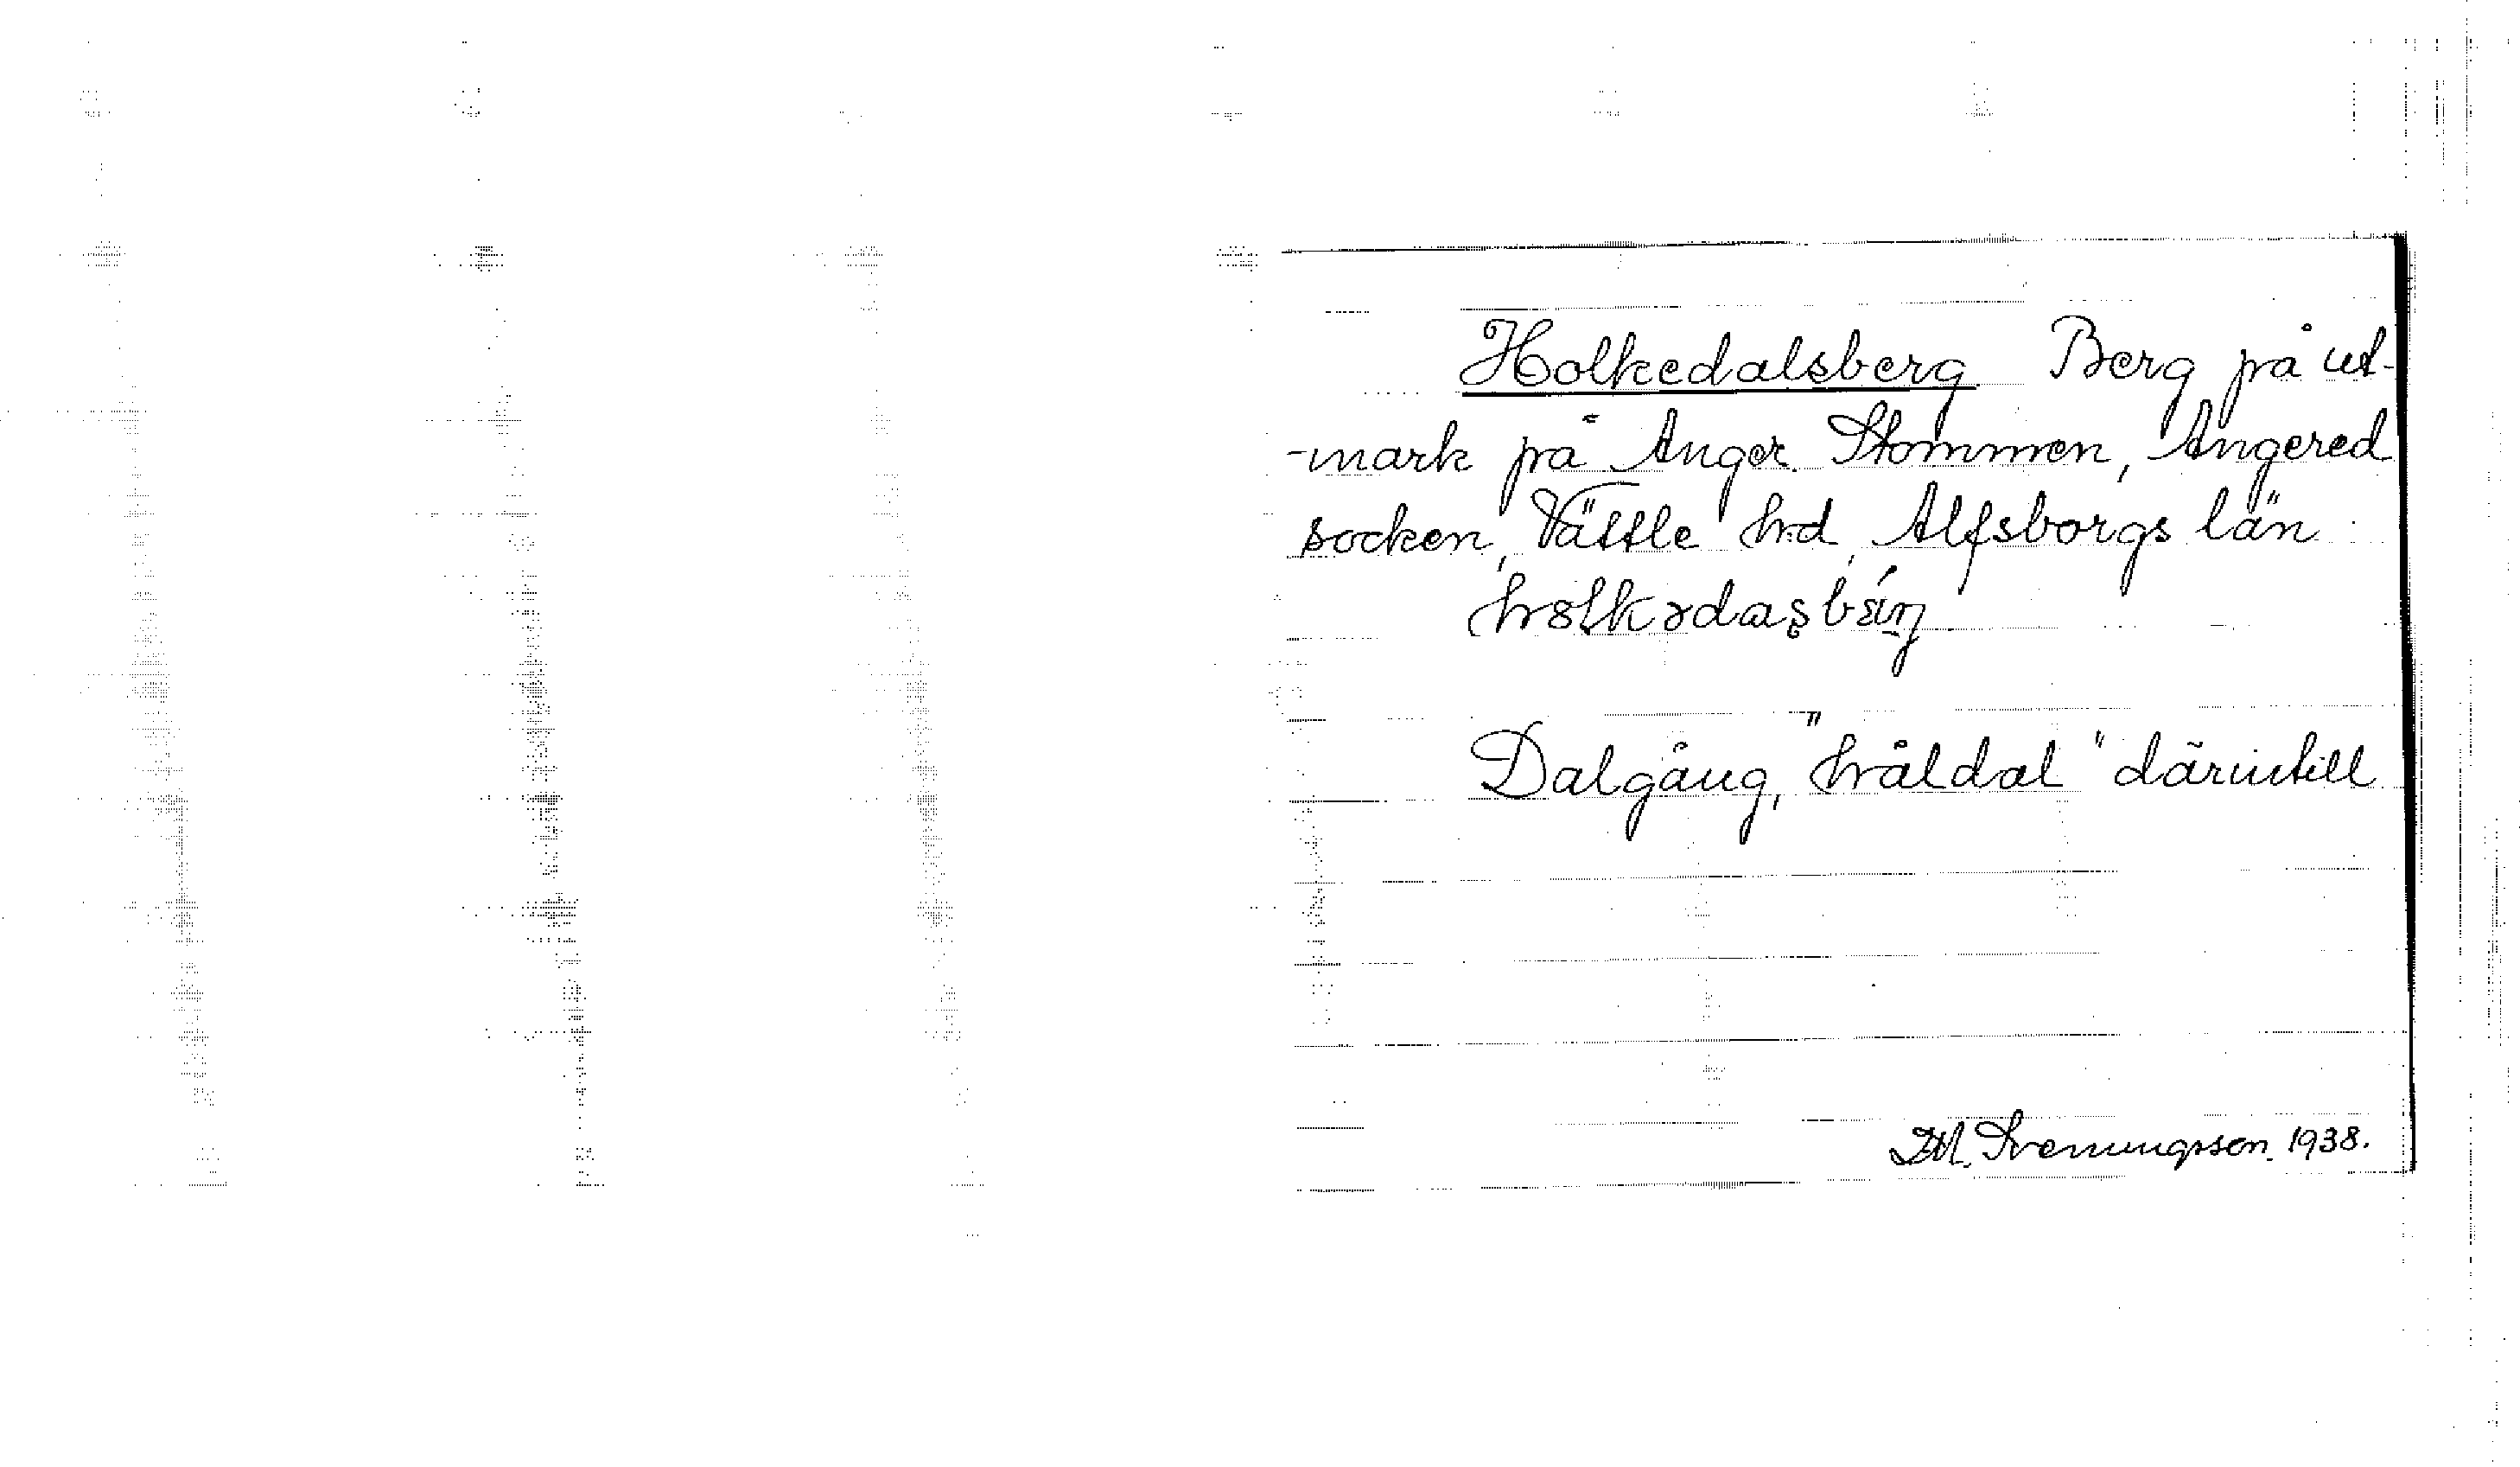 Holkedalsberg Berg på ut-
-mark på Anger Stommen, Angered
socken, Vättle hd, Älfsborgs län
Dalgång, "håldal" därintill
Svenungsson 1938.